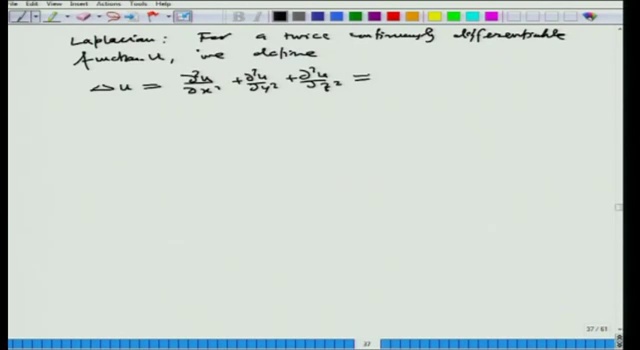 File Edit View Insert Actions Tools Help
Laplacian: For a twice continuously differentiable
function u, we define
Δu = ∂²u/∂x² + ∂²u/∂y² + ∂²u/∂z² =
37 / 61
37